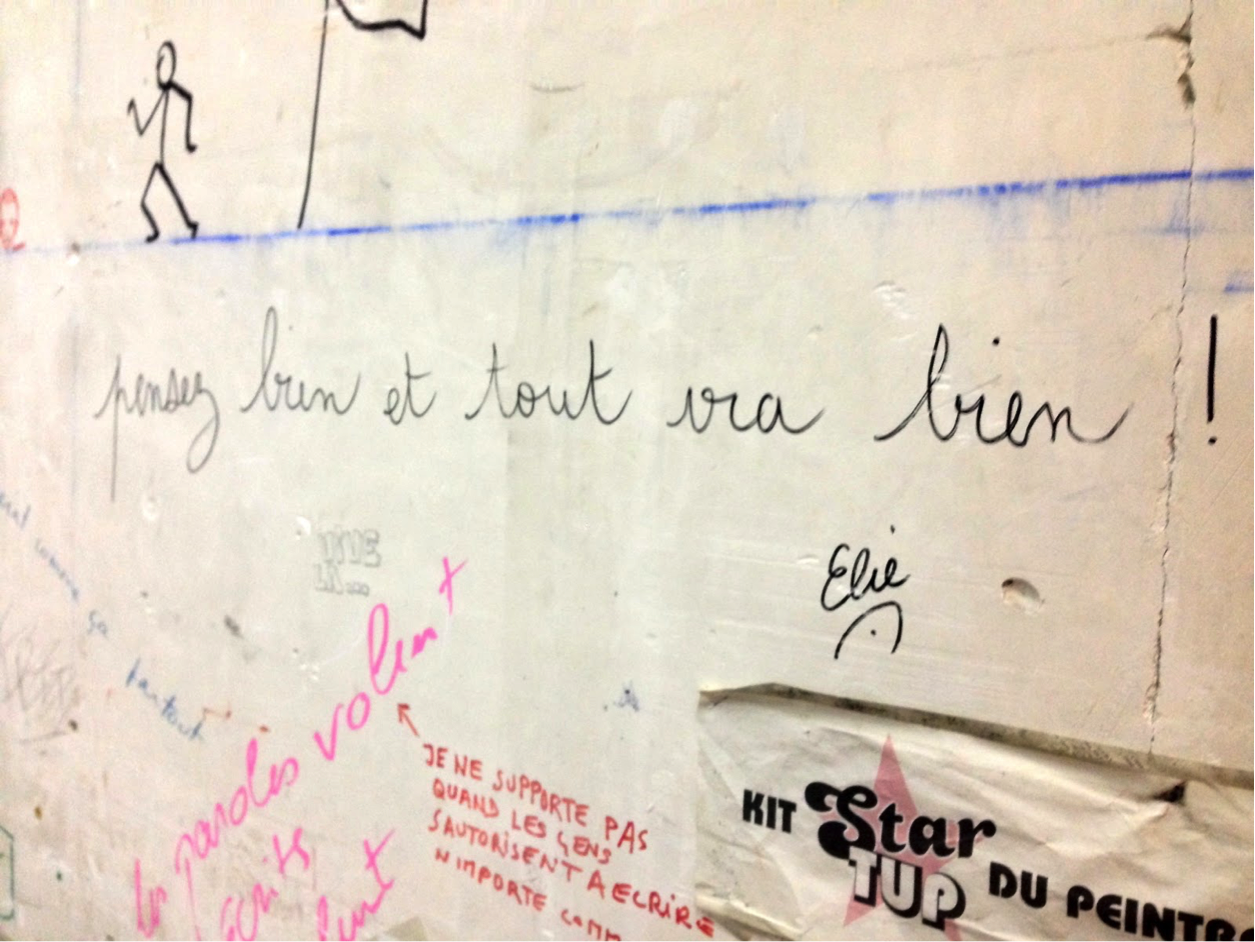 pensez bien et tout ira bien !
Elie
VIVE
LA...
comme ça
partout
les paroles volent
écrits
JE NE SUPPORTE PAS
QUAND LES GENS
S'AUTORISENT A ECRIRE
N IMPORTE COMM
KIT Star
TUP DU PEINTR